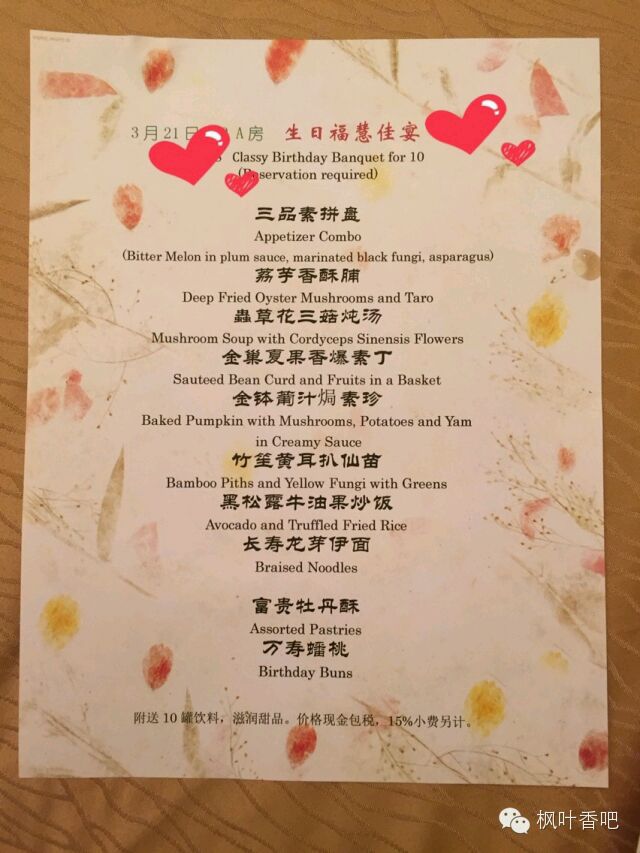 3月21日 A房 生日福慧佳宴
Classy Birthday Banquet for 10
required)
三品素拼盘
Appetizer Combo
(Bitter Melon in plum sauce, marinated black fungi, asparagus)
荔芋香酥脯
Deep Fried Oyster Mushrooms and Taro
蟲草花三菇炖汤
Mushroom Soup with Cordyceps Sinensis Flowers
金巢夏果香爆素丁
Sauteed Bean Curd and Fruits in a Basket
金钵葡汁焗素珍
Baked Pumpkin with Mushrooms, Potatoes and Yam
in Creamy Sauce
竹笙黄耳扒仙苗
Bamboo Piths and Yellow Fungi with Greens
黑松露牛油果炒饭
Avocado and Truffled Fried Rice
长寿龙芽伊面
Braised Noodles
富贵牡丹酥
Assorted Pastries
万寿蟠桃
Birthday Buns
附送10罐饮料，滋润甜品。价格现金包税，15%小费另计。
枫叶香吧